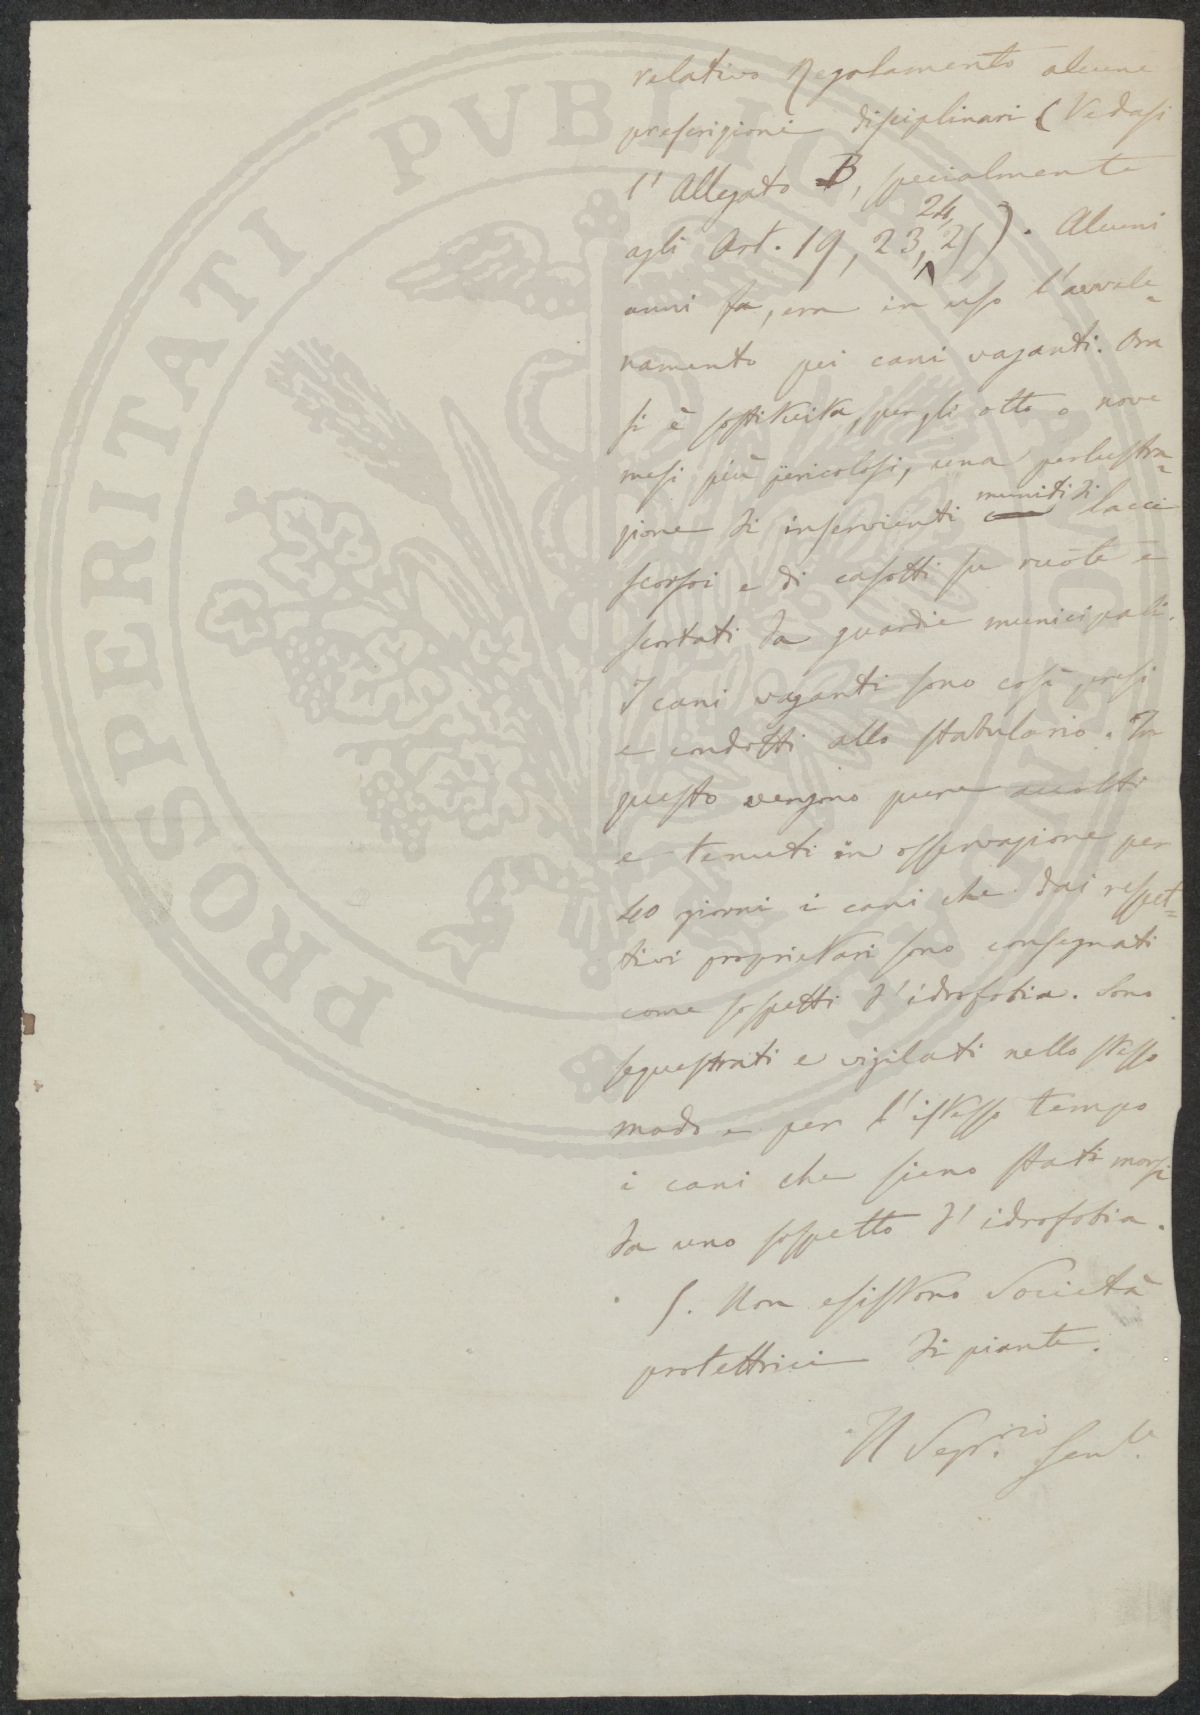 relativo Regolamento alcune
prescrizioni disciplinari (Vedasi
l'Allegato B, specialmente
agli Art. 19, 23, 24, 25). Alcuni
anni fa, era in uso l'avvele-
namento pei cani vaganti. Ora
si è sostituita, per gli otto o nove
mesi più pericolosi, una perlustra-
zione di inservienti muniti di lacci
scorsoi e di casotti su ruote e
scortati da guardie municipali.
I cani vaganti sono così presi
e condotti allo stabulario. In
questo vengono pure accolti
e tenuti in osservazione per
40 giorni i cani che dai rispet-
tivi proprietari sono consegnati
come sospetti d'idrofobia. Sono
sequestrati e vigilati nello stesso
modo e per l'istesso tempo
i cani che sieno stati morsi
da uno sospetto d'idrofobia.
5. Non esistono Società
protettrici di piante.
Il Segr.rio Gen.le
PROSPERITATI PVBLICAE AVGENDAE